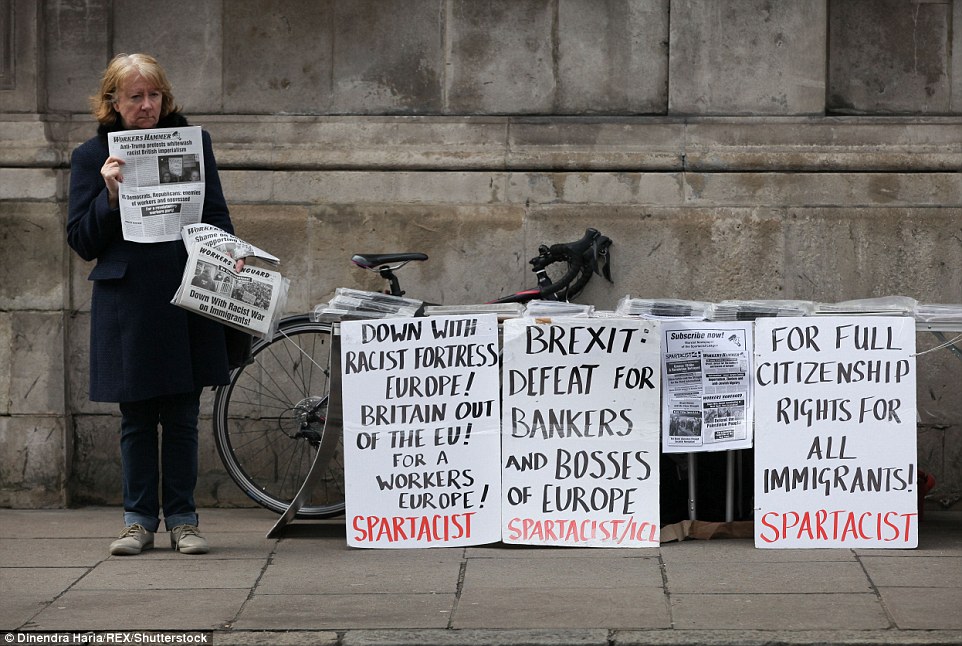 WORKERS HAMMER
Anti-Trump protests whitewash
racist British imperialism
Democrats, Republicans: enemies
of workers and oppressed
For a revolutionary
workers party!
WORKERS
Shame on
supporting
WORKERS VANGUARD
Down With Racist War
on Immigrants!
DOWN WITH
RACIST FORTRESS
EUROPE!
BRITAIN OUT
OF THE EU!
FOR A
WORKERS
EUROPE!
SPARTACIST
BREXIT:
DEFEAT FOR
BANKERS
AND BOSSES
OF EUROPE
SPARTACIST/ICL
Subscribe now!
SPARTACIST
WORKERS HAMMER
WORKERS VANGUARD
FOR FULL
CITIZENSHIP
RIGHTS FOR
ALL
IMMIGRANTS!
SPARTACIST
© Dinendra Haria/REX/Shutterstock